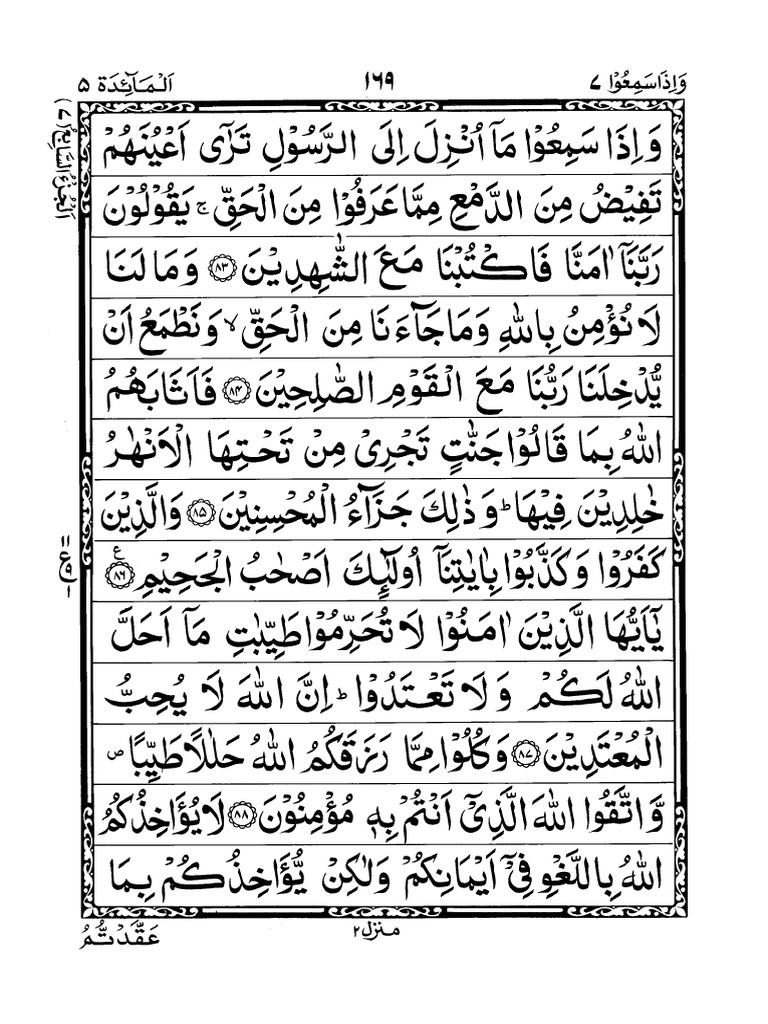 وَاِذَاسَمِعُوْا ٧ ١٦٩ اَلْمَآئِدَة ٥
اَلْجُزْءُ السَّابِعُ (٧)
وَاِذَا سَمِعُوْا مَاۤ اُنْزِلَ اِلَى الرَّسُوْلِ تَرٰۤى اَعْيُنَهُمْ
تَفِيْضُ مِنَ الدَّمْعِ مِمَّا عَرَفُوْا مِنَ الْحَقِّ ۚ يَقُوْلُوْنَ
رَبَّنَاۤ اٰمَنَّا فَاكْتُبْنَا مَعَ الشّٰهِدِيْنَ ۝٨٣ وَمَا لَنَا
لَا نُؤْمِنُ بِاللّٰهِ وَمَا جَآءَنَا مِنَ الْحَقِّ ۙ وَنَطْمَعُ اَنْ
يُّدْخِلَنَا رَبُّنَا مَعَ الْقَوْمِ الصّٰلِحِيْنَ ۝٨٤ فَاَثَابَهُمُ
اللّٰهُ بِمَا قَالُوْا جَنّٰتٍ تَجْرِيْ مِنْ تَحْتِهَا الْاَنْهٰرُ
خٰلِدِيْنَ فِيْهَا ؕ وَذٰلِكَ جَزَآءُ الْمُحْسِنِيْنَ ۝٨٥ وَالَّذِيْنَ
كَفَرُوْا وَكَذَّبُوْا بِاٰيٰتِنَاۤ اُولٰٓئِكَ اَصْحٰبُ الْجَحِيْمِ ۝٨٦ ع
يٰۤاَيُّهَا الَّذِيْنَ اٰمَنُوْا لَا تُحَرِّمُوْا طَيِّبٰتِ مَاۤ اَحَلَّ
اللّٰهُ لَكُمْ وَلَا تَعْتَدُوْا ؕ اِنَّ اللّٰهَ لَا يُحِبُّ
الْمُعْتَدِيْنَ ۝٨٧ وَكُلُوْا مِمَّا رَزَقَكُمُ اللّٰهُ حَلٰلًا طَيِّبًا ص
وَّاتَّقُوا اللّٰهَ الَّذِيْۤ اَنْتُمْ بِهٖ مُؤْمِنُوْنَ ۝٨٨ لَا يُؤَاخِذُكُمُ
اللّٰهُ بِاللَّغْوِ فِيْۤ اَيْمَانِكُمْ وَلٰكِنْ يُّؤَاخِذُكُمْ بِمَا
منزل ٢
عَقَّدْتُّمُ